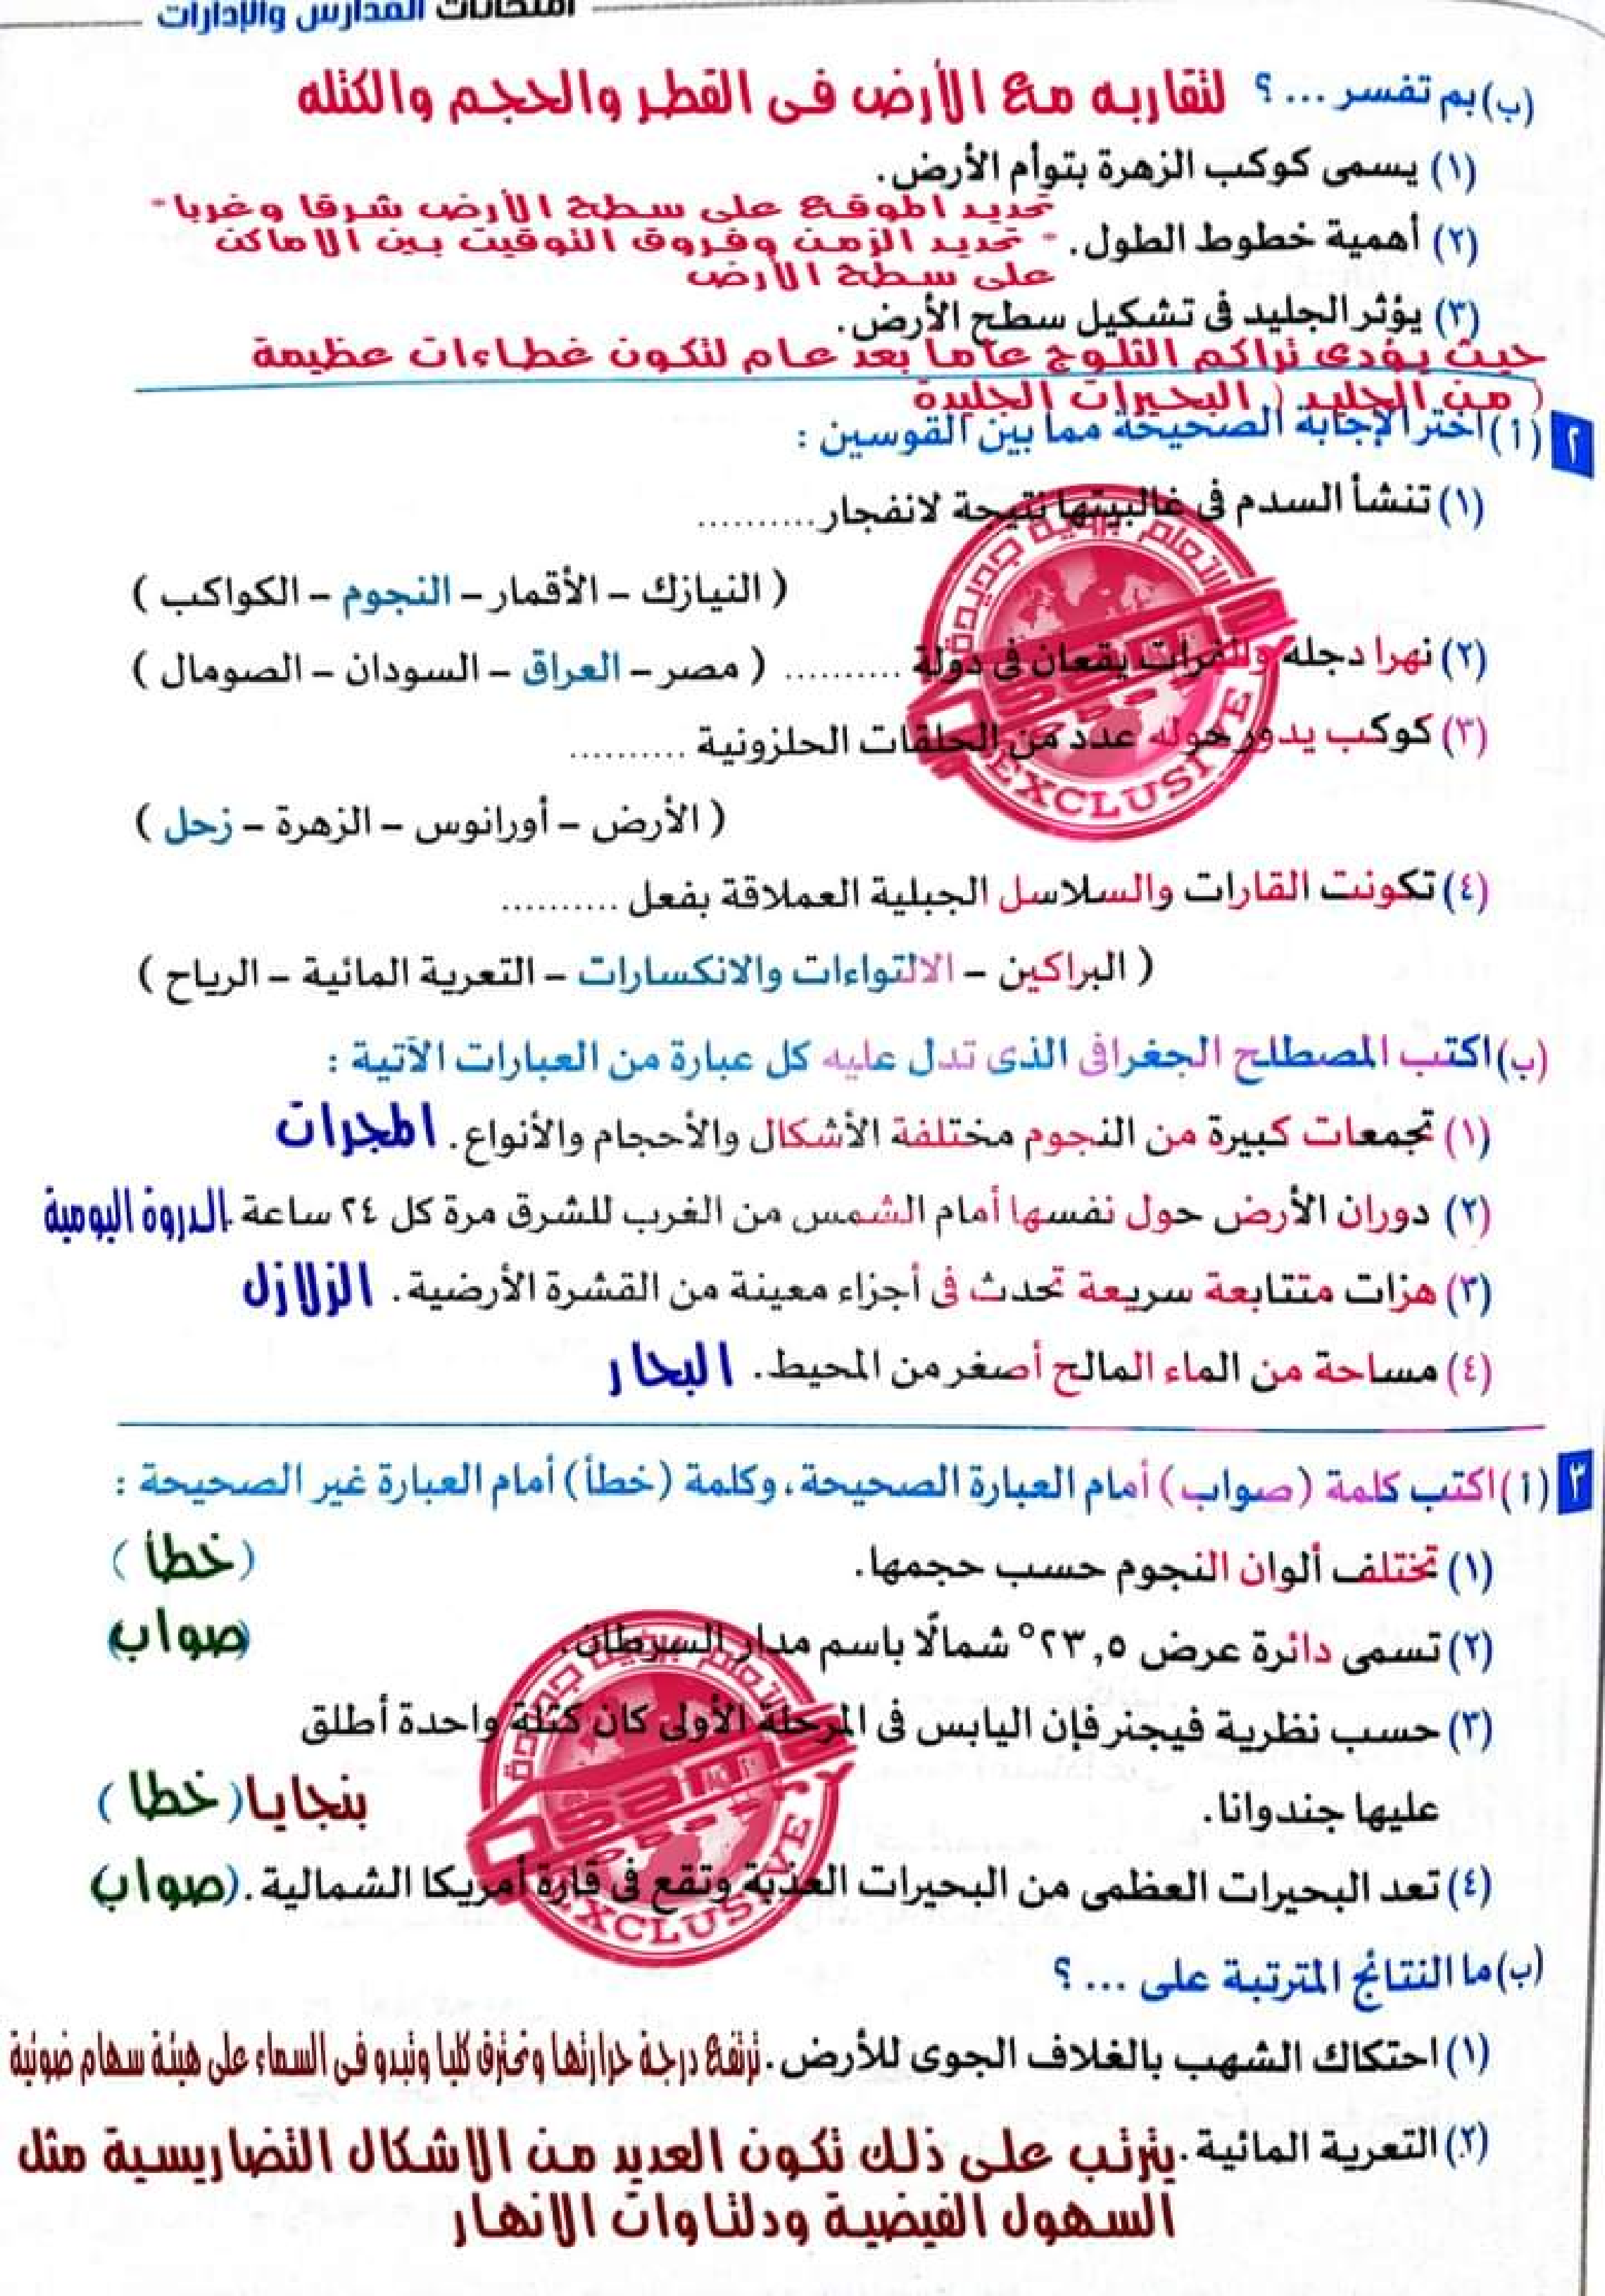 امتحانات المدارس والإدارات
(ب) بم تفسر ... ؟ لتقاربه مع الأرض فى القطر والحجم والكتله
(١) يسمى كوكب الزهرة بتوأم الأرض.
تحديد الموقع على سطح الأرض شرقا وغربا -
(٢) أهمية خطوط الطول. - تحديد الزمن وفروق التوقيت بين الاماكن
على سطح الارض
(٣) يؤثر الجليد فى تشكيل سطح الأرض.
حيث يؤدى تراكم الثلوج عاما بعد عام لتكون غطاءات عظيمة
من الجليد ( البحيرات الجليدة )
٢ (أ) اختر الإجابة الصحيحة مما بين القوسين :
(١) تنشأ السدم فى غالبيتها نتيجة لانفجار ..........
( النيازك – الأقمار – النجوم – الكواكب )
(٢) نهرا دجلة والفرات يقعان فى دولة .......... ( مصر – العراق – السودان – الصومال )
(٣) كوكب يدور حوله عدد من الحلقات الحلزونية ..........
( الأرض – أورانوس – الزهرة – زحل )
(٤) تكونت القارات والسلاسل الجبلية العملاقة بفعل ..........
( البراكين – الالتواءات والانكسارات – التعرية المائية – الرياح )
(ب) اكتب المصطلح الجغرافى الذى تدل عليه كل عبارة من العبارات الآتية :
(١) تجمعات كبيرة من النجوم مختلفة الأشكال والأحجام والأنواع. المجرات
(٢) دوران الأرض حول نفسها أمام الشمس من الغرب للشرق مرة كل ٢٤ ساعة. الدروة اليومية
(٣) هزات متتابعة سريعة تحدث فى أجزاء معينة من القشرة الأرضية. الزلازل
(٤) مساحة من الماء المالح أصغر من المحيط. البحار
٣ (أ) اكتب كلمة (صواب) أمام العبارة الصحيحة، وكلمة (خطأ) أمام العبارة غير الصحيحة :
(١) تختلف ألوان النجوم حسب حجمها. (خطأ)
(٢) تسمى دائرة عرض ٢٣,٥° شمالًا باسم مدار السرطان. (صواب)
(٣) حسب نظرية فيجنر فإن اليابس فى المرحلة الأولى كان كتلة واحدة أطلق
عليها جندوانا. بنجايا (خطا)
(٤) تعد البحيرات العظمى من البحيرات العذبة وتقع فى قارة أمريكا الشمالية. (صواب)
(ب) ما النتائج المترتبة على ... ؟
(١) احتكاك الشهب بالغلاف الجوى للأرض. ترتفع درجة حرارتها وتحترق كليا وتبدو فى السماء على هيئة سهام ضوئية
(٢) التعرية المائية. يترتب على ذلك تكون العديد من الاشكال التضاريسية مثل
السهول الفيضية ودلتاوات الانهار
EXCLUSIVE
EXCLUSIVE